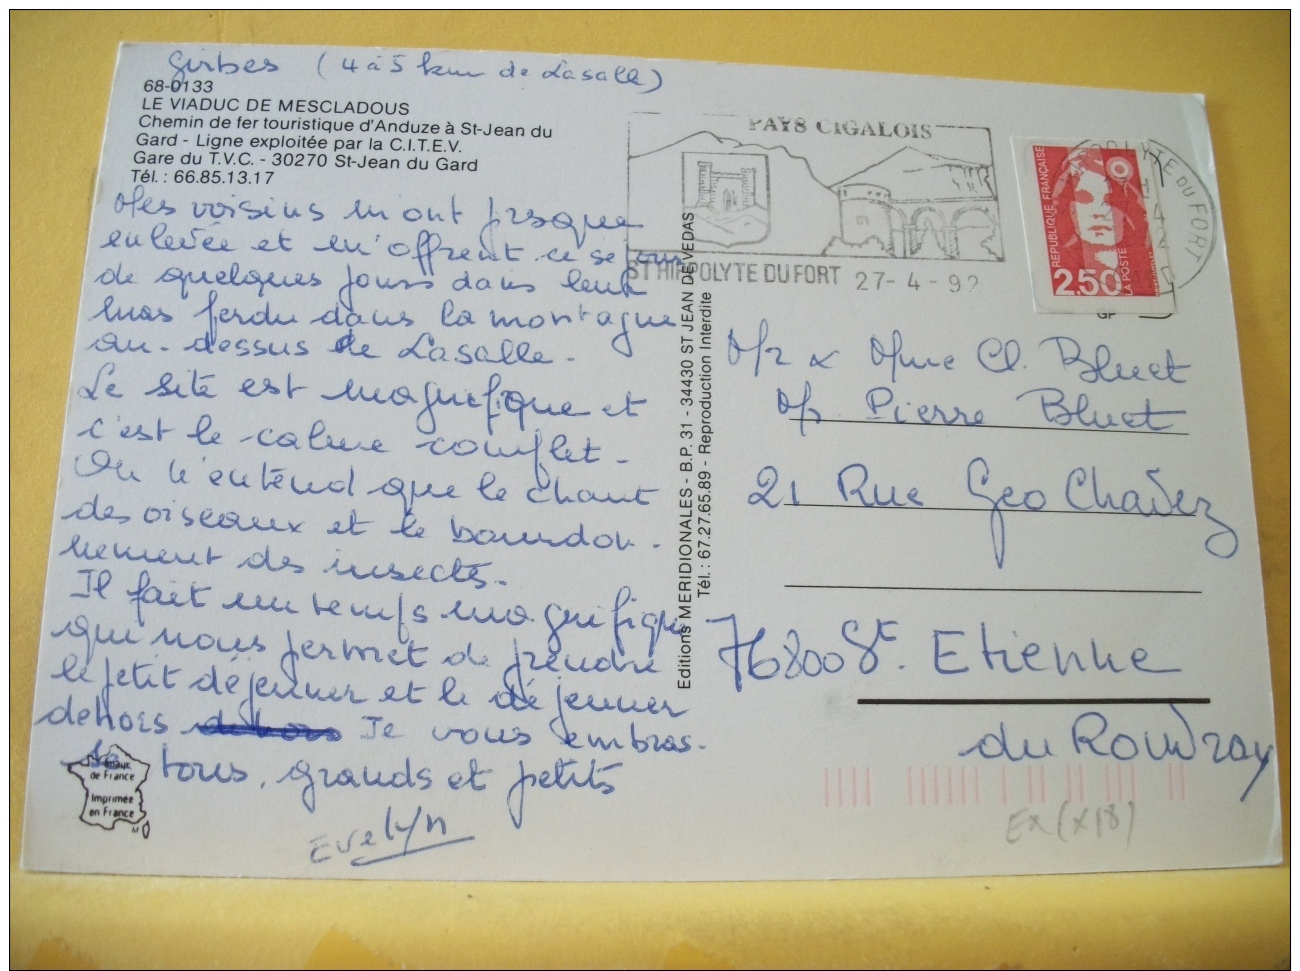 Girbes (4 à 5 km de Lasalle)
68-0133
LE VIADUC DE MESCLADOUS
Chemin de fer touristique d'Anduze à St-Jean du
Gard - Ligne exploitée par la C.I.T.E.V.
Gare du T.V.C. - 30270 St-Jean du Gard
Tél. : 66.85.13.17
Mes voisins m'ont presque
enlevée et m'offrent ce séjour
de quelques jours dans leur
mas perdu dans la montagne
au-dessus de Lasalle.
Le site est magnifique et
c'est le calme complet.
On n'entend que le chant
des oiseaux et le bourdon-
nement des insectes.
Il fait un temps magnifique
qui nous permet de prendre
le petit déjeuner et le déjeuner
dehors dehors Je vous embras-
se tous, grands et petits
Evelyn
de France
Imprimée
en France
M
Editions MERIDIONALES - B.P. 31 - 34430 ST JEAN DE VEDAS
Tél. : 67.27.65.89 - Reproduction Interdite
PAYS CIGALOIS
ST HIPPOLYTE DU FORT 27-4-92
HIPPOLYTE DU FORT
REPUBLIQUE FRANÇAISE
2,50
LA POSTE
GP
Mr & Mme Cl. Bluet
Mr Pierre Bluet
21 Rue Geo Chavez
76800 St. Etienne
du Rouvray
Ex (x18)